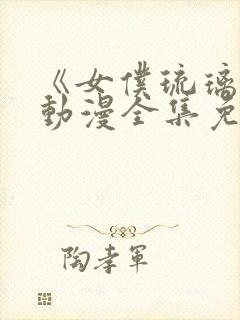 《女僕琉璃
動漫全集免
陶孝軍